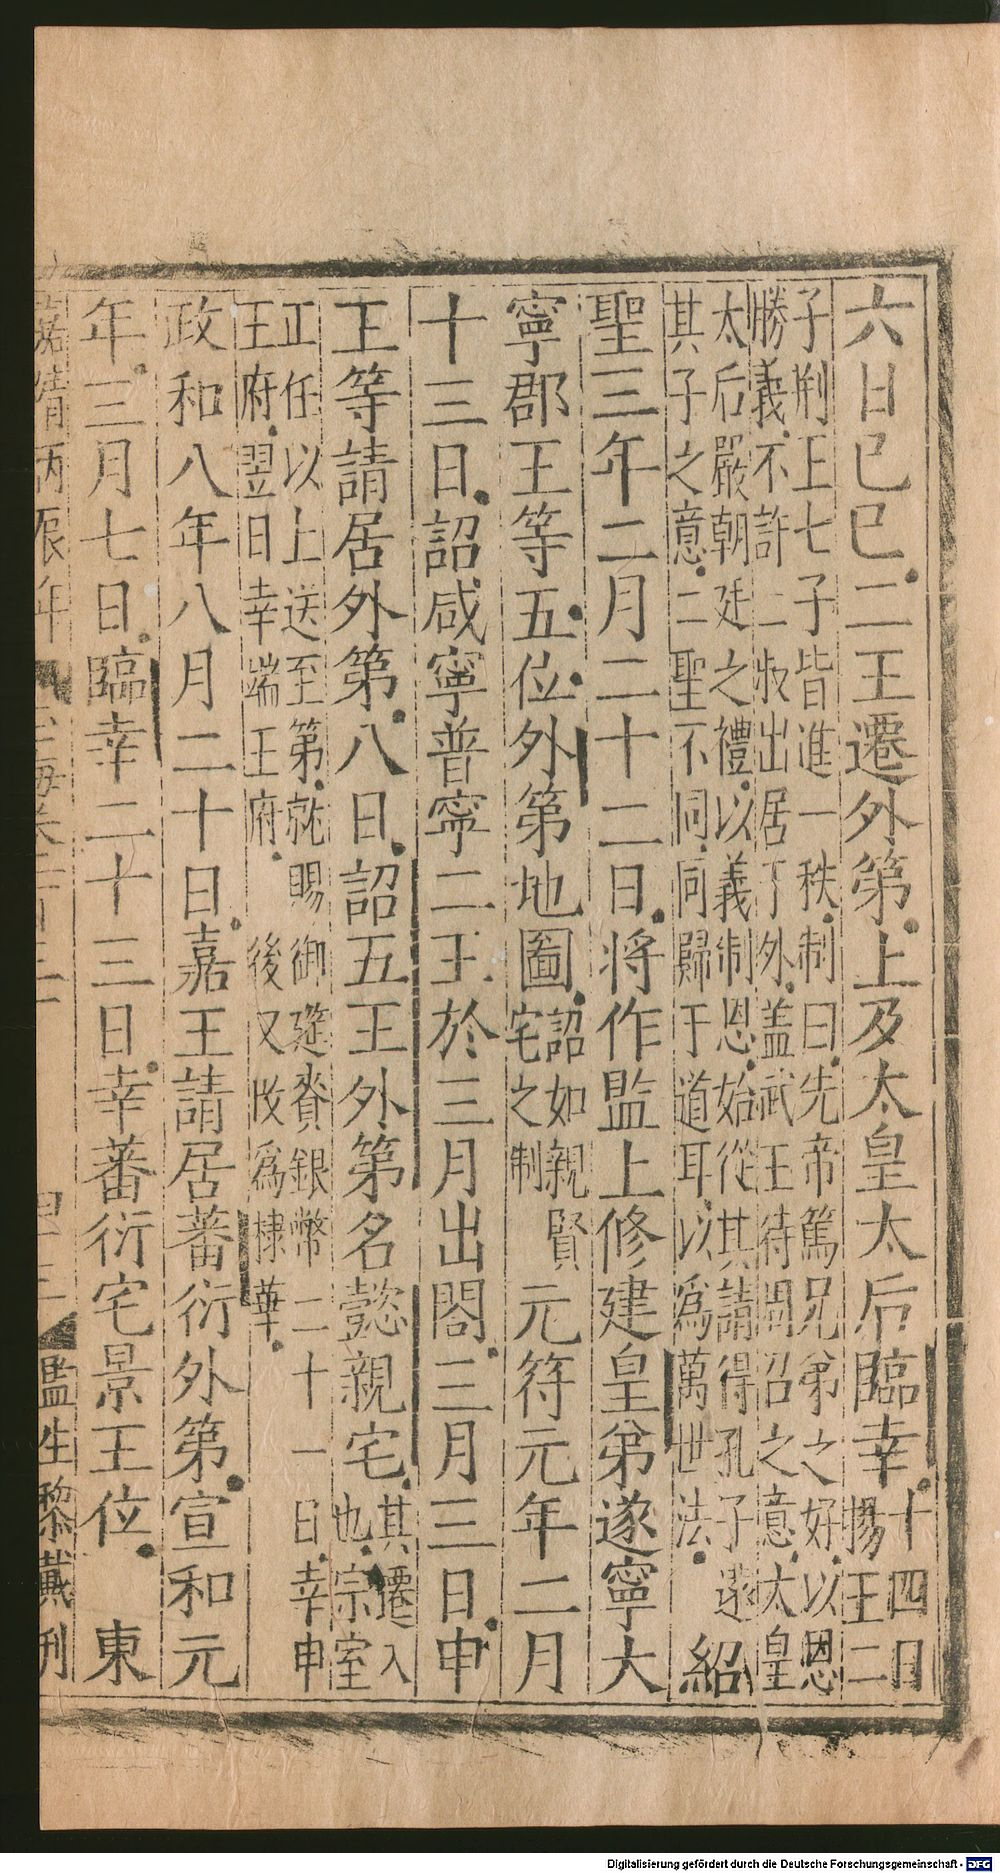 六日己巳二王遷外第上及太皇太后臨幸十四日
揚王二
子荊王七子皆進一秩制曰先帝篤兄弟之好以恩
勝義不許二叔出居于外蓋武王待周召之意太皇
太后嚴朝廷之禮以義制恩始從其請得孔子遠
其子之意二聖不同同歸于道耳以為萬世法紹
聖三年二月二十二日將作監上修建皇弟遂寧大
寧郡王等五位外第地圖詔如親賢
宅之制元符元年二月
十三日詔咸寧普寧二王於三月出閤三月三日申
王等請居外第八日詔五王外第名懿親宅其遷入
也宗室
正任以上送至第就賜御筵賚銀幣二十一日幸申
王府翌日幸端王府後又改為棣華
政和八年八月二十日嘉王請居蕃衍外第宣和元
年三月七日臨幸二十三日幸蕃衍宅景王位東
嘉靖丙辰年 玉海卷 監生黎戴刋
Digitalisierung gefördert durch die Deutsche Forschungsgemeinschaft - DFG